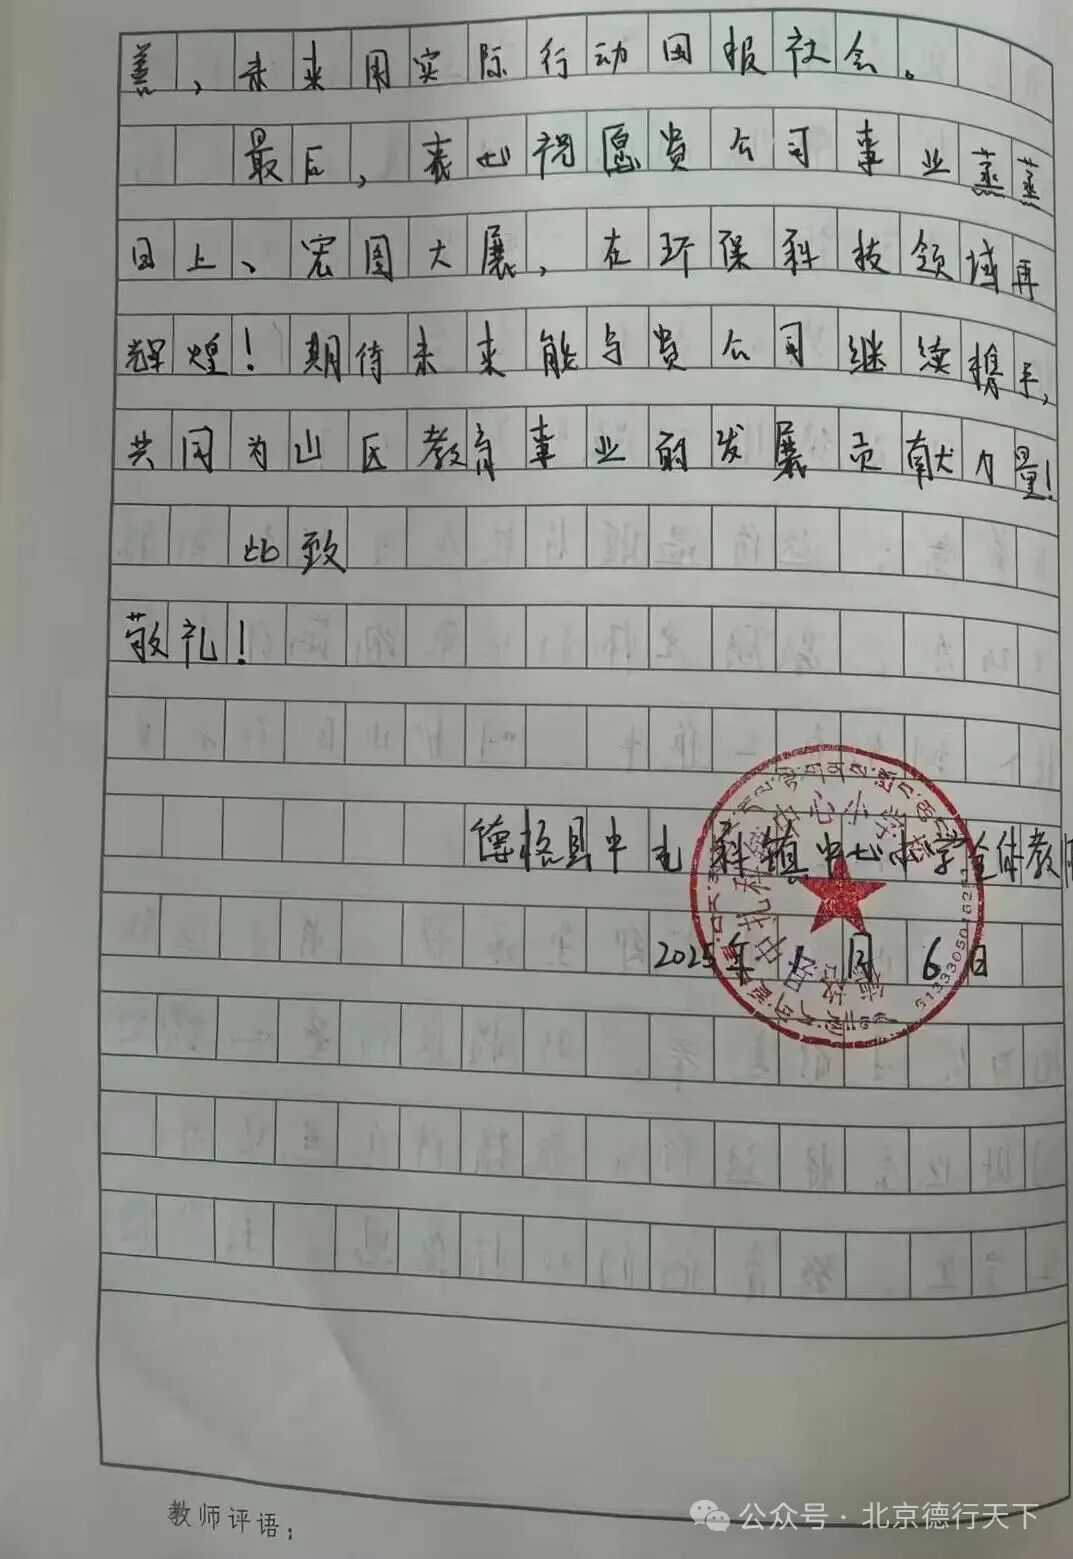 善，未来用实际行动回报社会。
最后，衷心祝愿贵公司事业蒸蒸
日上、宏图大展，在环保科技领域再
辉煌！期待未来能与贵公司继续携手，
共同为山区教育事业的发展贡献力量！
此致
敬礼！
德格县中扎科镇中心小学全体教师
2025年1月6日
5133305016251
教师评语：
公众号·北京德行天下